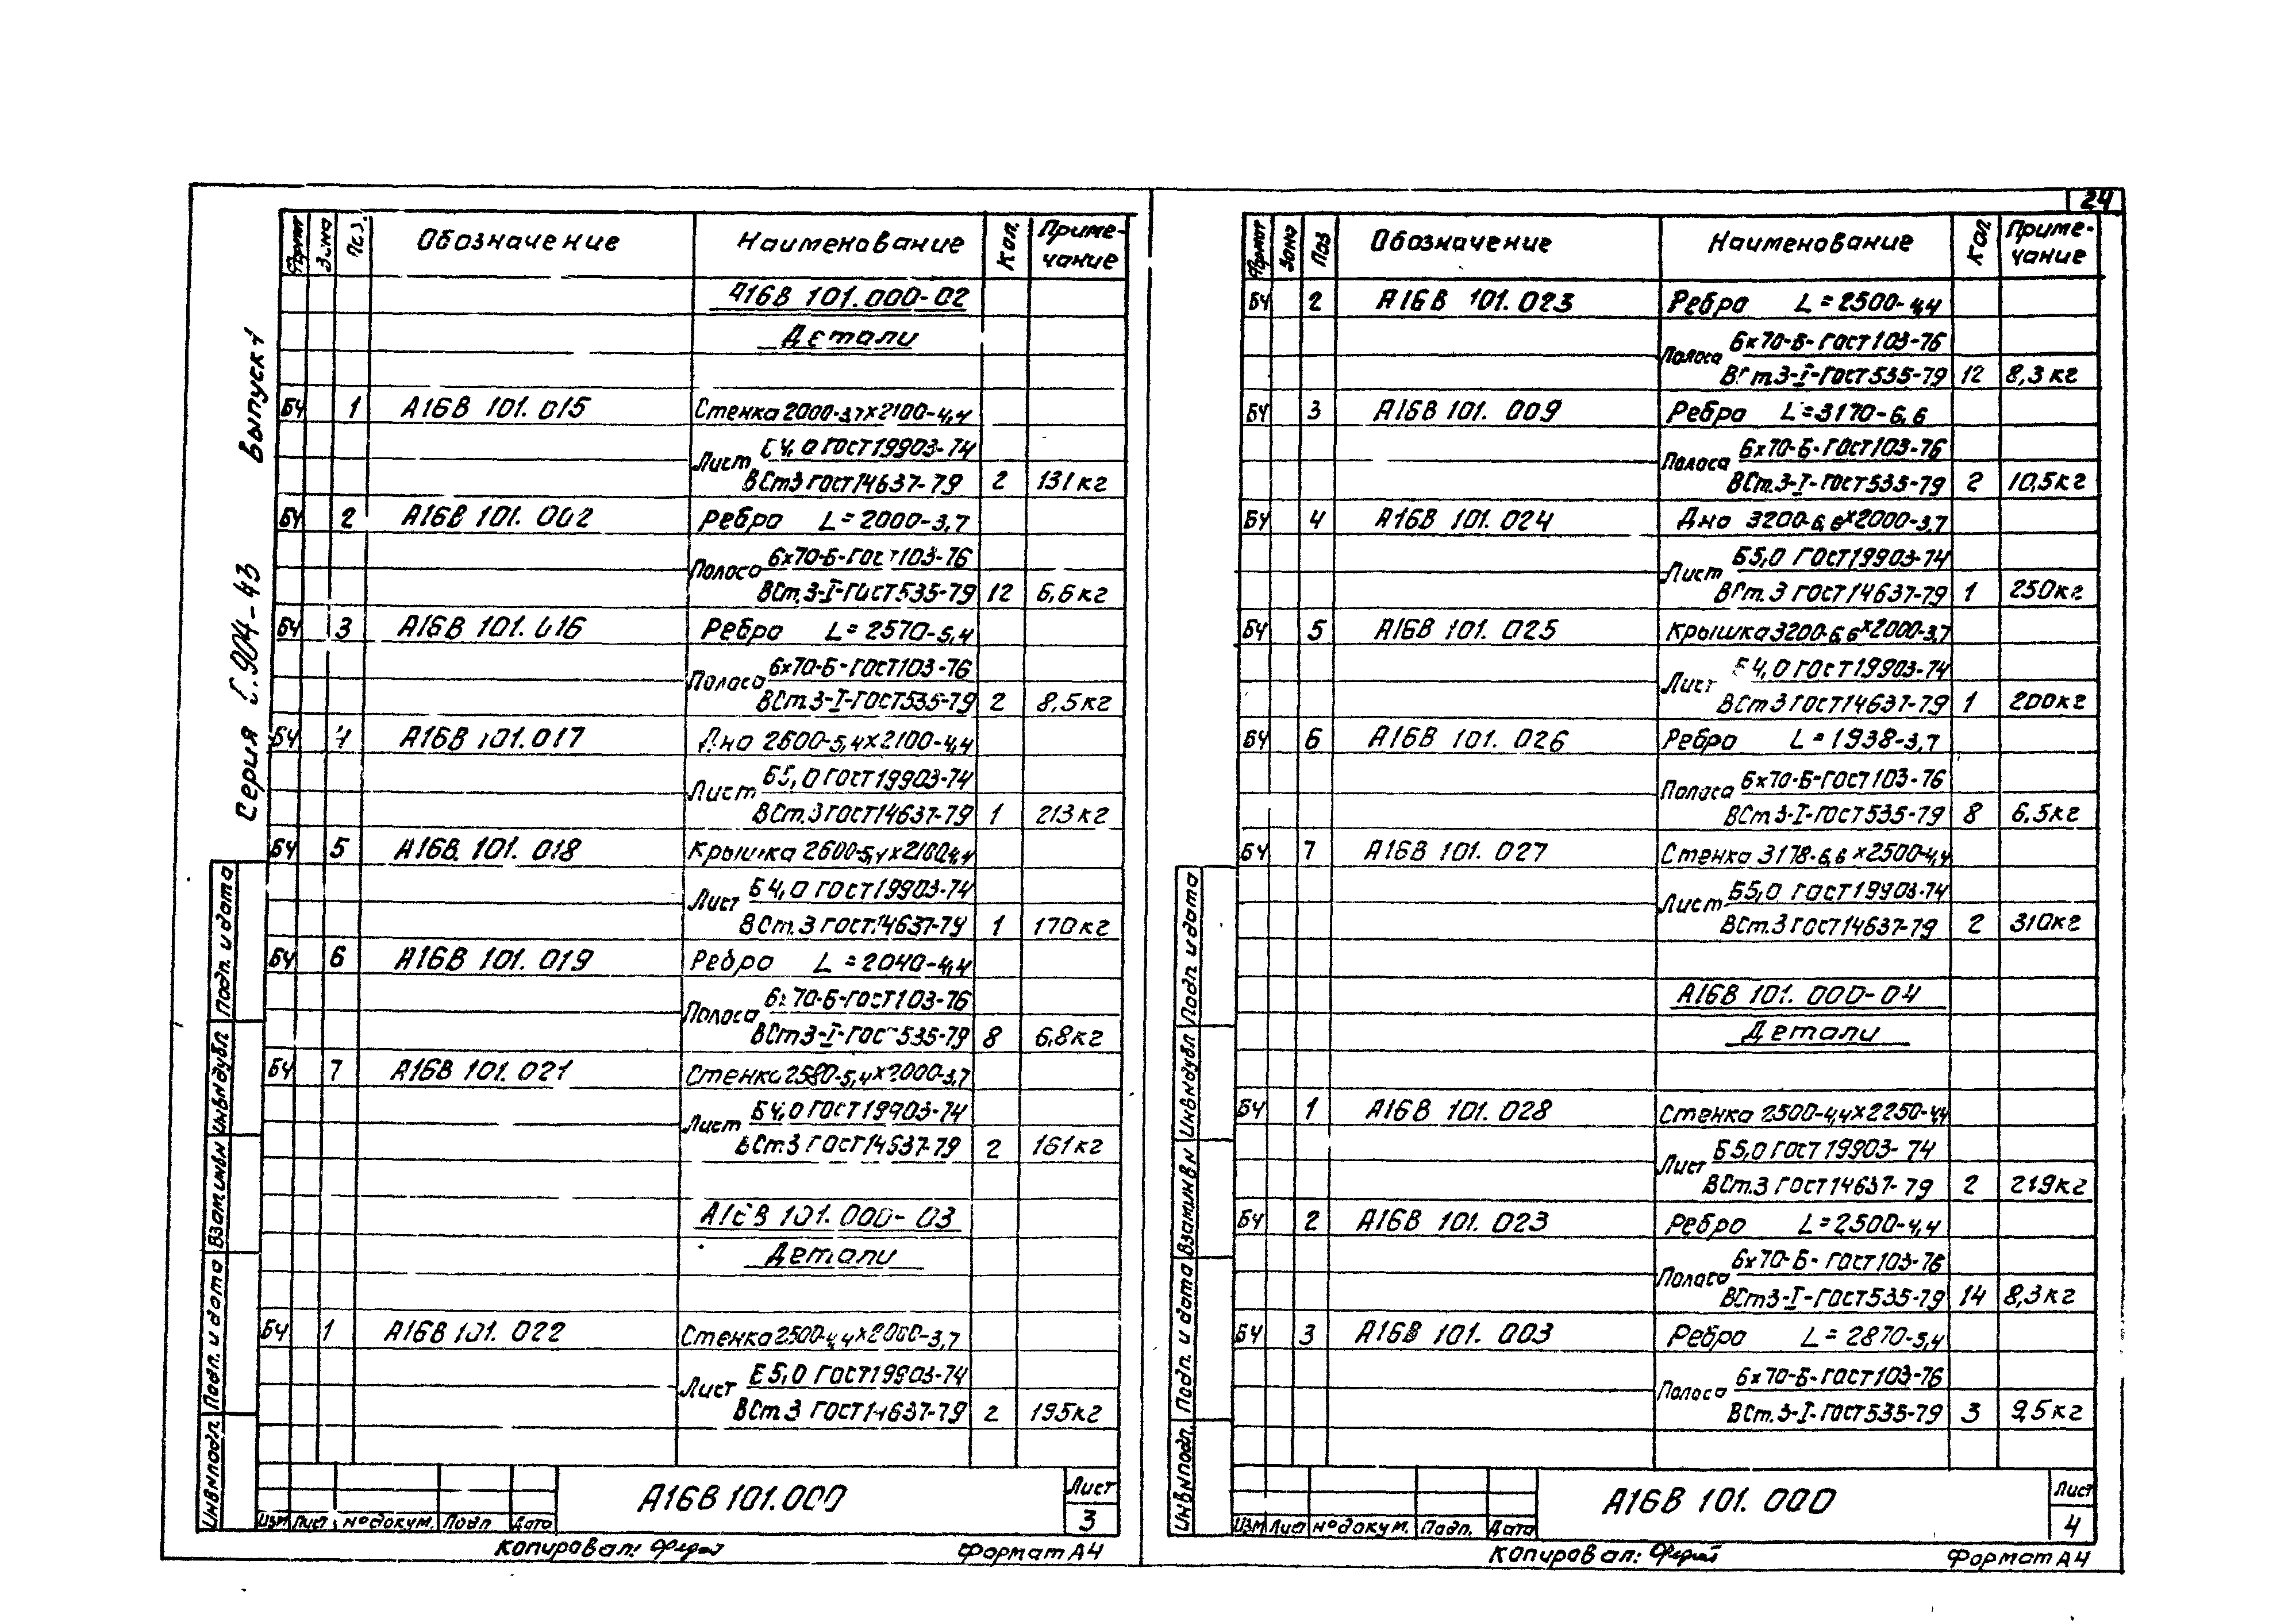 24
Серия 5.904-43 Выпуск 1
Формат Зона Поз. Обозначение Наименование Кол. Приме-
чание
А16В 101.000-02
Детали
БЧ 1 А16В 101.015 Стенка 2000-3,7х2100-4,4
Б4,0 ГОСТ19903-74
Лист
ВСт3 ГОСТ14637-79 2 131кг
БЧ 2 А16В 101.002 Ребро L=2000-3,7
6х70-Б-ГОСТ103-76
Полоса
ВСт.3-I-ГОСТ535-79 12 6,6кг
БЧ 3 А16В 101.016 Ребро L=2570-5,4
6х70-Б-ГОСТ103-76
Полоса
ВСт.3-I-ГОСТ535-79 2 8,5кг
БЧ 4 А16В 101.017 Дно 2600-5,4х2100-4,4
Б5,0 ГОСТ19903-74
Лист
ВСт.3 ГОСТ14637-79 1 213кг
БЧ 5 А16В 101.018 Крышка 2600-5,4х2100-4,4
Б4,0 ГОСТ19903-74
Лист
ВСт.3 ГОСТ14637-79 1 170кг
БЧ 6 А16В 101.019 Ребро L=2040-4,4
6х70-Б-ГОСТ103-76
Полоса
ВСт3-I-ГОСТ535-79 8 6,8кг
БЧ 7 А16В 101.021 Стенка 2580-5,4х2000-3,7
Б4,0 ГОСТ19903-74
Лист
ВСт.3 ГОСТ14637-79 2 161кг
А16В 101.000-03
Детали
БЧ 1 А16В 101.022 Стенка 2500-4,4х2000-3,7
Б5,0 ГОСТ19903-74
Лист
ВСт.3 ГОСТ14637-79 2 195кг
Инв№подл. Подп. и дата Взам.инв№ Инв№дубл. Подп. и дата
Изм Лист №докум. Подп. Дата
А16В 101.000
Лист
3
Копировал: Формат А4
Формат Зона Поз Обозначение Наименование Кол Приме-
чание
БЧ 2 А16В 101.023 Ребро L=2500-4,4
6х70-Б-ГОСТ103-76
Полоса
ВСт.3-I-ГОСТ535-79 12 8,3кг
БЧ 3 А16В 101.009 Ребро L=3170-6,6
6х70-Б-ГОСТ103-76
Полоса
ВСт.3-I-ГОСТ535-79 2 10,5кг
БЧ 4 А16В 101.024 Дно 3200-6,6х2000-3,7
Б5,0 ГОСТ19903-74
Лист
ВСт.3 ГОСТ14637-79 1 250кг
БЧ 5 А16В 101.025 Крышка 3200-6,6х2000-3,7
Б4,0 ГОСТ19903-74
Лист
ВСт3 ГОСТ14637-79 1 200кг
БЧ 6 А16В 101.026 Ребро L=1938-3,7
6х70-Б-ГОСТ103-76
Полоса
ВСт3-I-ГОСТ535-79 8 6,5кг
БЧ 7 А16В 101.027 Стенка 3178-6,6х2500-4,4
Б5,0 ГОСТ19903-74
Лист
ВСт.3 ГОСТ14637-79 2 310кг
А16В 101.000-04
Детали
БЧ 1 А16В 101.028 Стенка 2500-4,4х2250-4,4
Б5,0 ГОСТ19903-74
Лист
ВСт.3 ГОСТ14637-79 2 219кг
БЧ 2 А16В 101.023 Ребро L=2500-4,4
6х70-Б-ГОСТ103-76
Полоса
ВСт3-I-ГОСТ535-79 14 8,3кг
БЧ 3 А16В 101.003 Ребро L=2870-5,4
6х70-Б-ГОСТ103-76
Полоса
ВСт.3-I-ГОСТ535-79 3 9,5кг
Инв№подл. Подп. и дата Взам.инв№ Инв№дубл Подп. и дата
Изм Лист №докум. Подп. Дата
А16В 101.000
Лист
4
Копировал: Формат А4